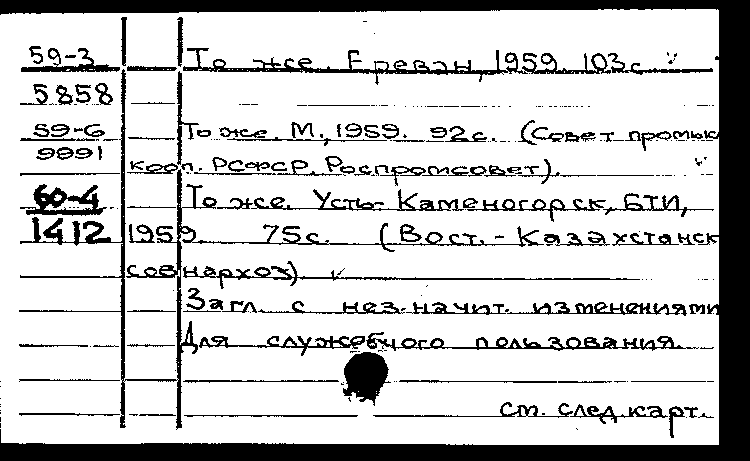 59-3 То же. Ереван, 1959. 103с
5858
59-6 То же. М., 1959. 92с. (Совет промык
9991 кооп. РСФСР. Роспромсовет).
60-4 То же. Усть-Каменогорск, БТИ,
1412 1959. 75с. (Вост.-Казахстанск
совнархоз).
Загл. с нез.начит. изменениями
Для служебного пользования.
ст. след.карт.